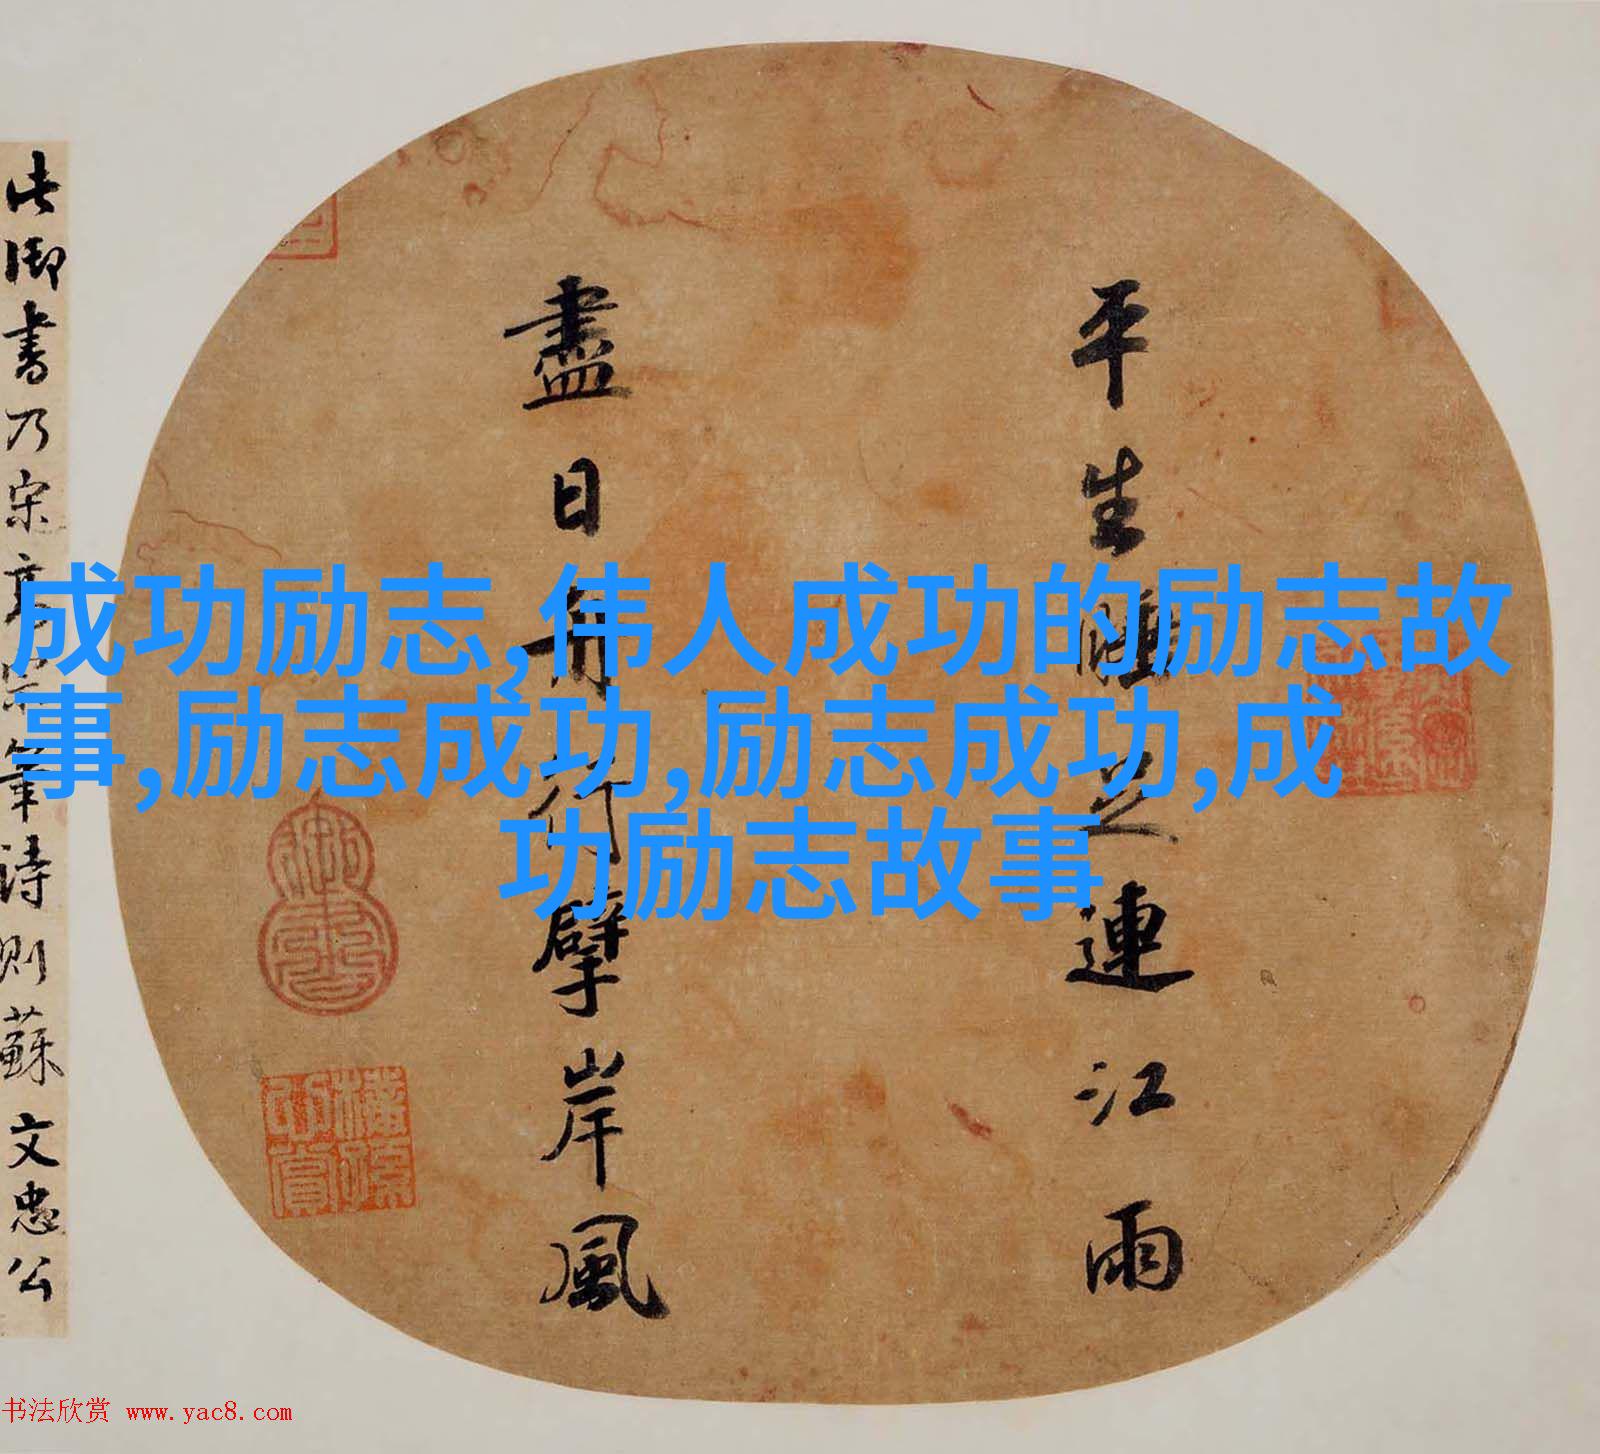 平生睡足連江雨
盡日舟擘岸風
此御書乃宋高宗筆詩則蘇文忠公
成功励志,伟人成功的励志故
事,励志成功,励志成功,成
功励志故事
书法欣赏 www.yac8.com